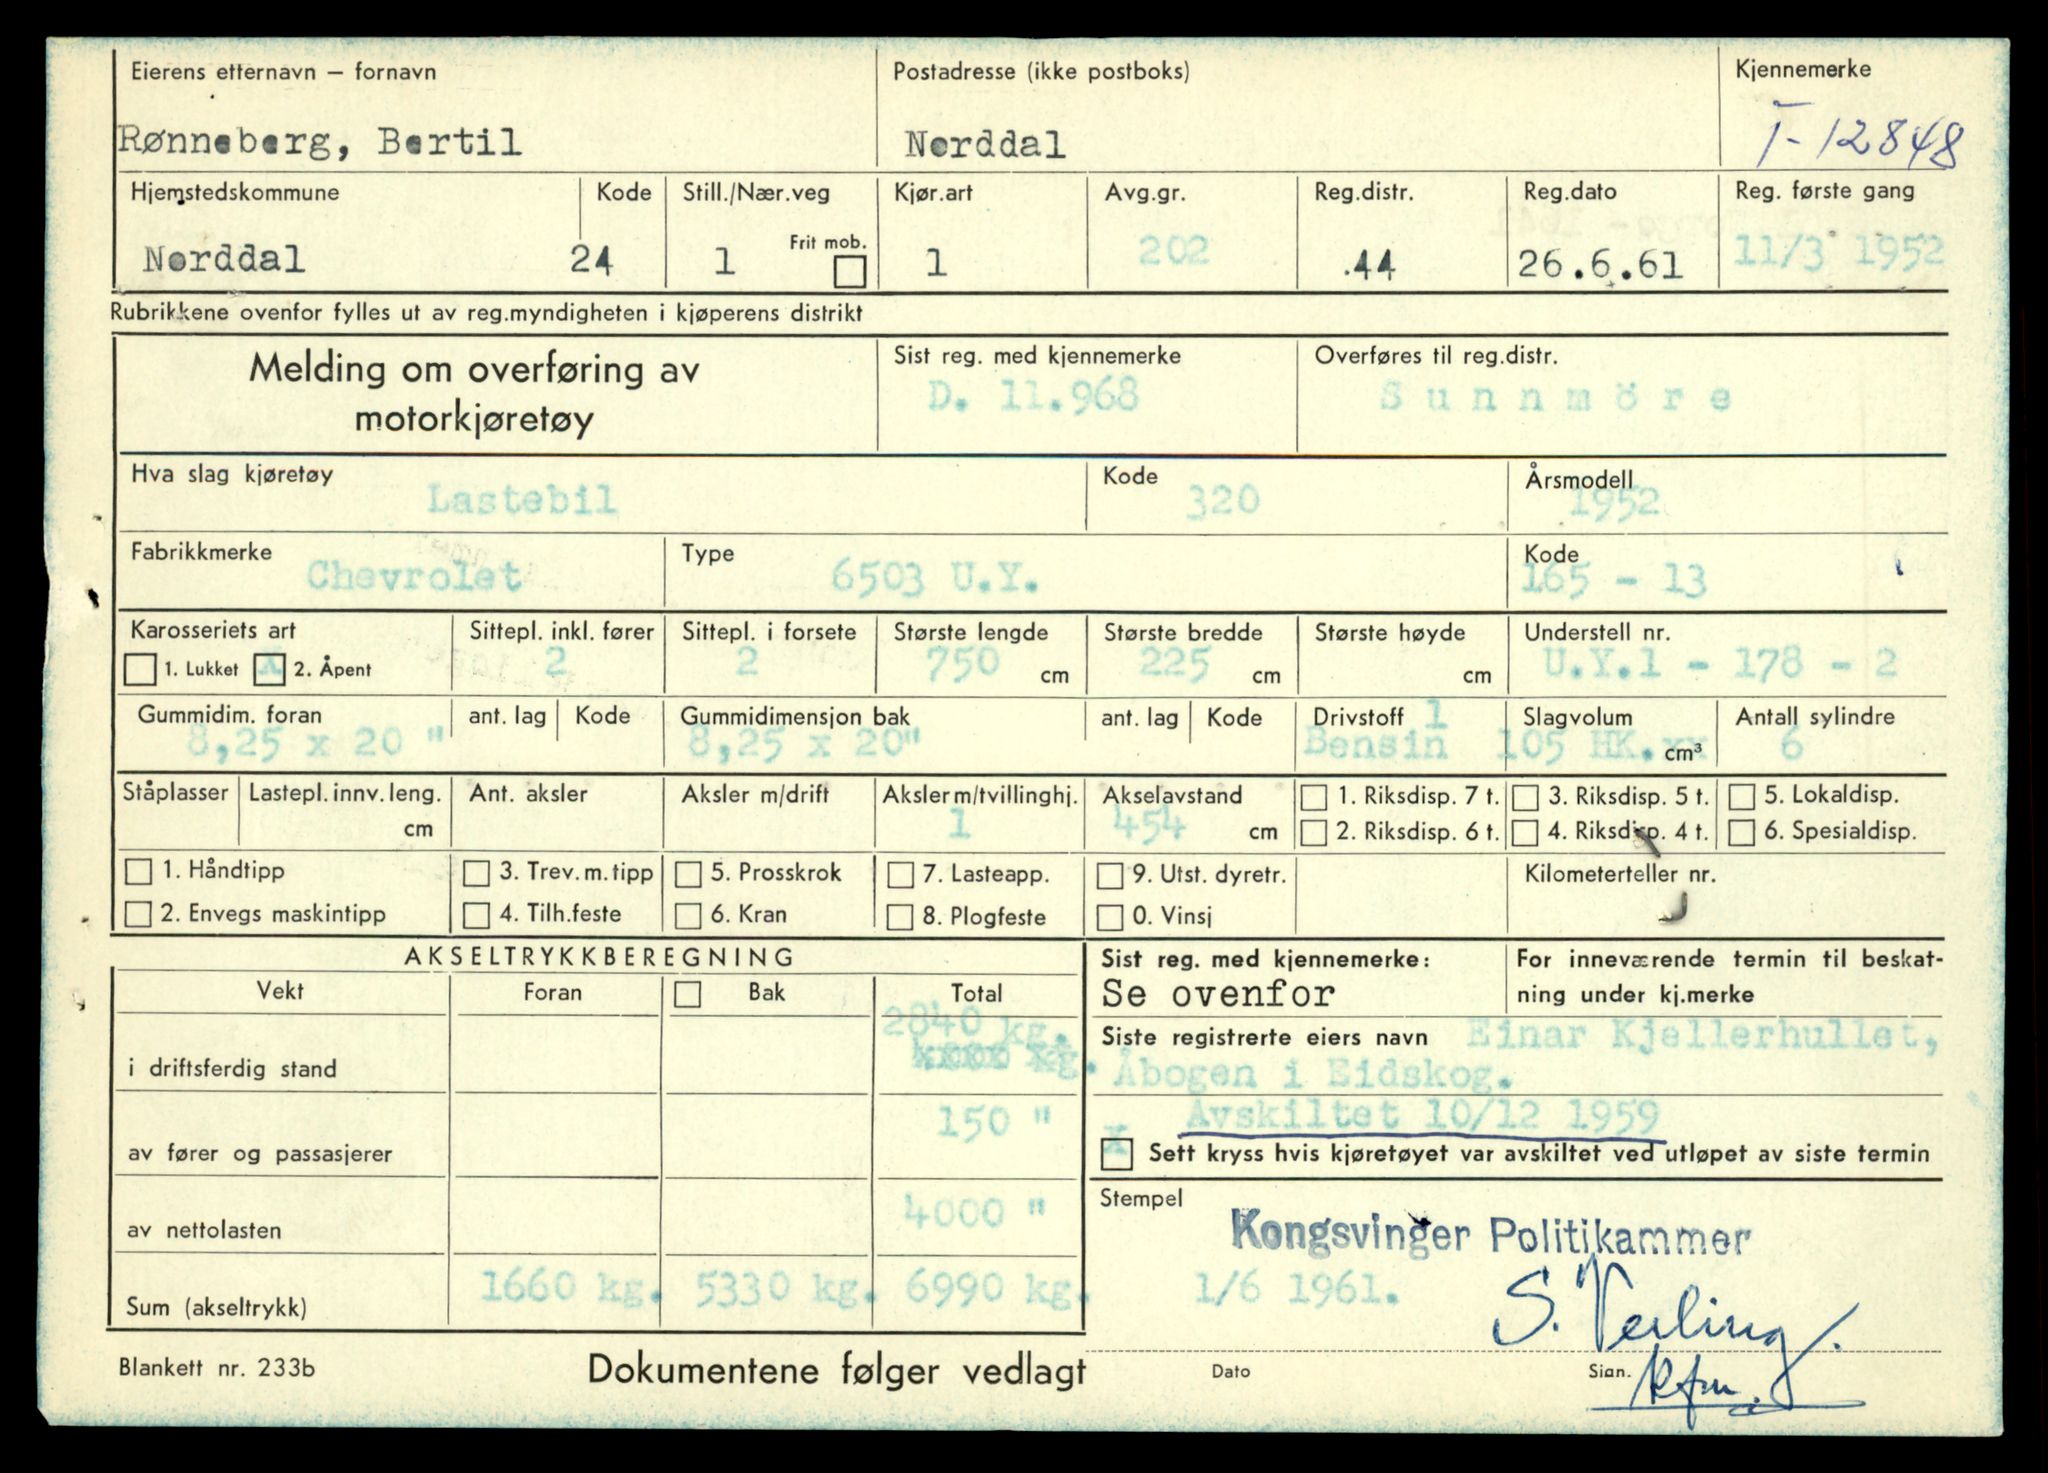 Eierens etternavn – fornavn
Postadresse (ikke postboks)
Kjennemerke
Rønneberg, Bertil
Norddal
T-12848
Hjemstedskommune
Kode
Still./Nær.veg
Kjør.art
Avg.gr.
Reg.distr.
Reg.dato
Reg. første gang
Norddal
24
1
Frit mob.
1
202
.44
26.6.61
11/3 1952
Rubrikkene ovenfor fylles ut av reg.myndigheten i kjøperens distrikt
Melding om overføring av
motorkjøretøy
Sist reg. med kjennemerke
D. 11.968
Overføres til reg.distr.
Sunnmöre
Hva slag kjøretøy
Lastebil
Kode
320
Årsmodell
1952
Fabrikkmerke
Chevrolet
Type
6503 U.Y.
Kode
165 - 13
Karosseriets art
x
1. Lukket
2. Åpent
Sittepl. inkl. fører
2
Sittepl. i forsete
2
Største lengde
750 cm
Største bredde
225 cm
Største høyde
cm
Understell nr.
U.Y.1 - 178 - 2
Gummidim. foran
8,25 x 20 "
ant. lag
Kode
Gummidimensjon bak
8,25 x 20"
ant. lag
Kode
Drivstoff 1
Bensin
Slagvolum
105 HK.xx cm³
Antall sylindre
6
Ståplasser
Lastepl. innv. leng.
cm
Ant. aksler
Aksler m/drift
Aksler m/tvillinghj.
1
Akselavstand
454 cm
1. Riksdisp. 7 t.
2. Riksdisp. 6 t.
3. Riksdisp. 5 t.
4. Riksdisp. 4 t.
5. Lokaldisp.
6. Spesialdisp.
1. Håndtipp
2. Envegs maskintipp
3. Trev. m. tipp
4. Tilh.feste
5. Prosskrok
6. Kran
7. Lasteapp.
8. Plogfeste
9. Utst. dyretr.
0. Vinsj
Kilometerteller nr.
AKSELTRYKKBEREGNING
Vekt
Foran
Bak
Total
i driftsferdig stand
2840 kg.
kg.
av fører og passasjerer
150 "
av nettolasten
4000 "
Sum (akseltrykk)
1660 kg.
5330 kg.
6990 kg.
Sist reg. med kjennemerke:
Se ovenfor
For inneværende termin til beskat-
ning under kj.merke
Siste registrerte eiers navn Einar Kjellerhullet,
Åbogen i Eidskog.
Avskiltet 10/12 1959
x
Sett kryss hvis kjøretøyet var avskiltet ved utløpet av siste termin
Stempel
Kongsvinger Politikammer
1/6 1961.
Dato
Sign.
Blankett nr. 233b
Dokumentene følger vedlagt